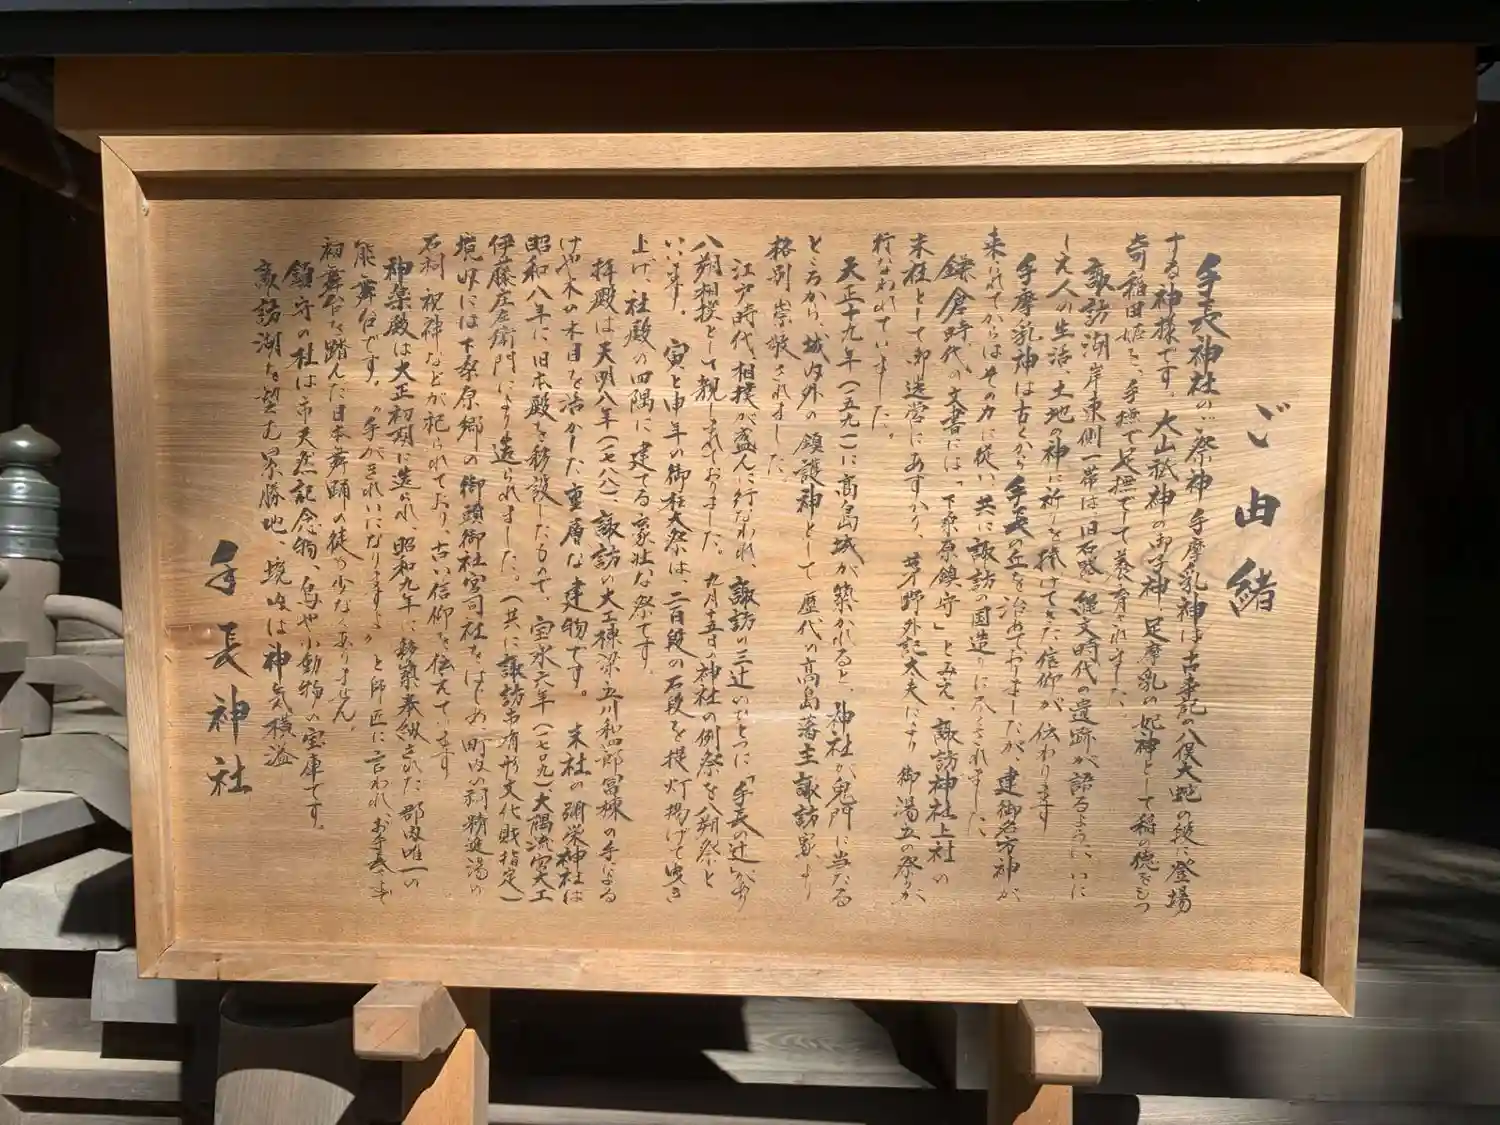 ご由緒
手長神社のご祭神 手摩乳神は古事記の八俣大蛇の段に登場
する神様です。大山祇神の御子神 足摩乳の妃神として稲の徳をもつ
奇稲田姫を、手撫で足撫でて養育されました。
諏訪湖岸東側一帯は旧石器 縄文時代の遺跡が語るように、いに
しえ人の生活、土地の神に祈りを捧げてきた信仰が伝わります
手摩乳神は古くから手長の丘を治めておりましたが、建御名方神が
来られてからはその力に従い、共に諏訪の国造りに尽くされました
鎌倉時代の文書には「下桑原鎮守」とみえ、諏訪神社上社の
末社として御造営にあずかり、茅野外記太夫により 御湯立の祭りが
行なわれていました。
天正十九年(一五九一)に高島城が築かれると、神社が鬼門に当たる
ところから、城内外の鎮護神として 歴代の高島藩主諏訪家より
格別崇敬されました
江戸時代、相撲が盛んに行なわれ、諏訪の三辻のひとつに「手長の辻」があり
八朔相撲として親しまれておりました。九月十五日の神社の例祭を八朔祭と
いいます。 寅と申年の御柱大祭は、二百段の石段を提灯掲げて曳き
上げ、社殿の四隅に建てる豪壮な祭です。
拝殿は天明八年(一七八八)、諏訪の大工棟梁 立川和四郎冨棟の手による
けやき木の木目を活かした重層な建物です。 末社の弥栄神社は
昭和八年に旧本殿を移設したもので、宝永六年(一七〇九)、大隅流宮大工
伊藤庄左衛門により造られました。(共に諏訪市有形文化財指定)
境内には下桑原郷の御頭御社宮司社をはじめ、町内の祠、精進湯の
石祠 祝神などが祀られており、古い信仰を伝えています
神楽殿は大正初期に造られ、昭和九年に移築奉納された 郡内唯一の
能舞台です。"手がきれいになりますよ"と師匠に言われ、お手長さまで
初舞台を踏んだ日本舞踊の徒も少なくありません。
鎮守の杜は市天然記念物、鳥や小動物の宝庫です。
諏訪湖を望む景勝地 境内は神気横溢
手長神社